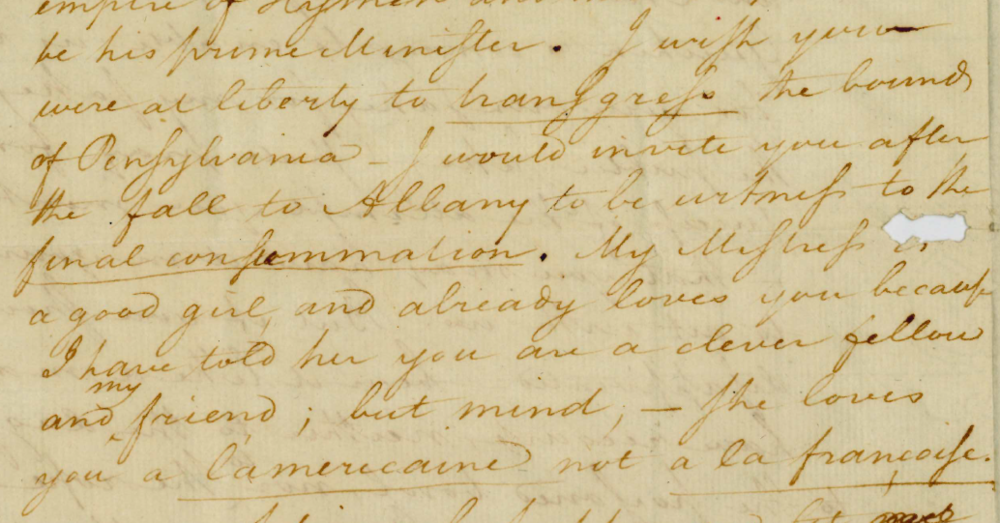 empire of Hymen and
be his prime Minister. I wish you
were at liberty to transgress the bounds
of Pensylvania – I would invite you after
the fall to Albany to be witness to the
final consummation. My Mistress is
a good girl, and already loves you because
I have told her you are a clever fellow
and my friend; but mind, – she loves
you a l'americaine not a la françoise.